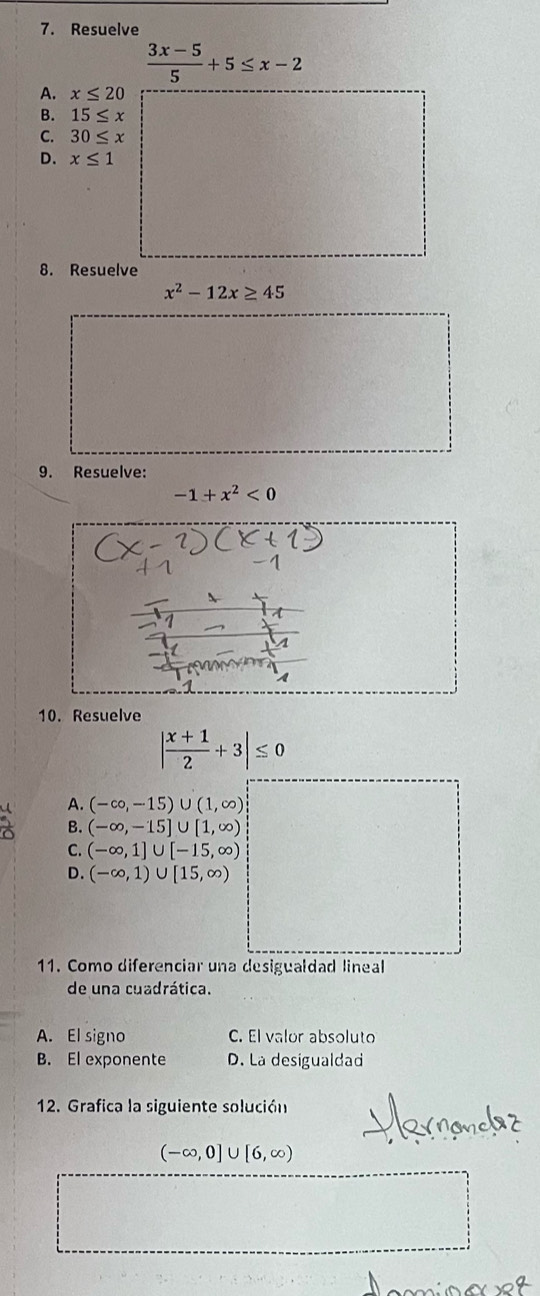 7. Resuelve
(3x − 5)/5 + 5 ≤ x − 2
A. x ≤ 20
B. 15 ≤ x
C. 30 ≤ x
D. x ≤ 1
8. Resuelve
x² − 12x ≥ 45
9. Resuelve:
−1 + x² < 0
(x - 1)(x + 1)
+1 -1
- + +
-1 1
- - +
-1 1
-1 1
10. Resuelve
|(x + 1)/2 + 3| ≤ 0
A. (−∞, −15) ∪ (1, ∞)
B. (−∞, −15] ∪ [1, ∞)
C. (−∞, 1] ∪ [−15, ∞)
D. (−∞, 1) ∪ [15, ∞)
11. Como diferenciar una desigualdad lineal
de una cuadrática.
A. El signo C. El valor absoluto
B. El exponente D. La desigualdad
12. Grafica la siguiente solución
Hernandez
(−∞, 0] ∪ [6, ∞)